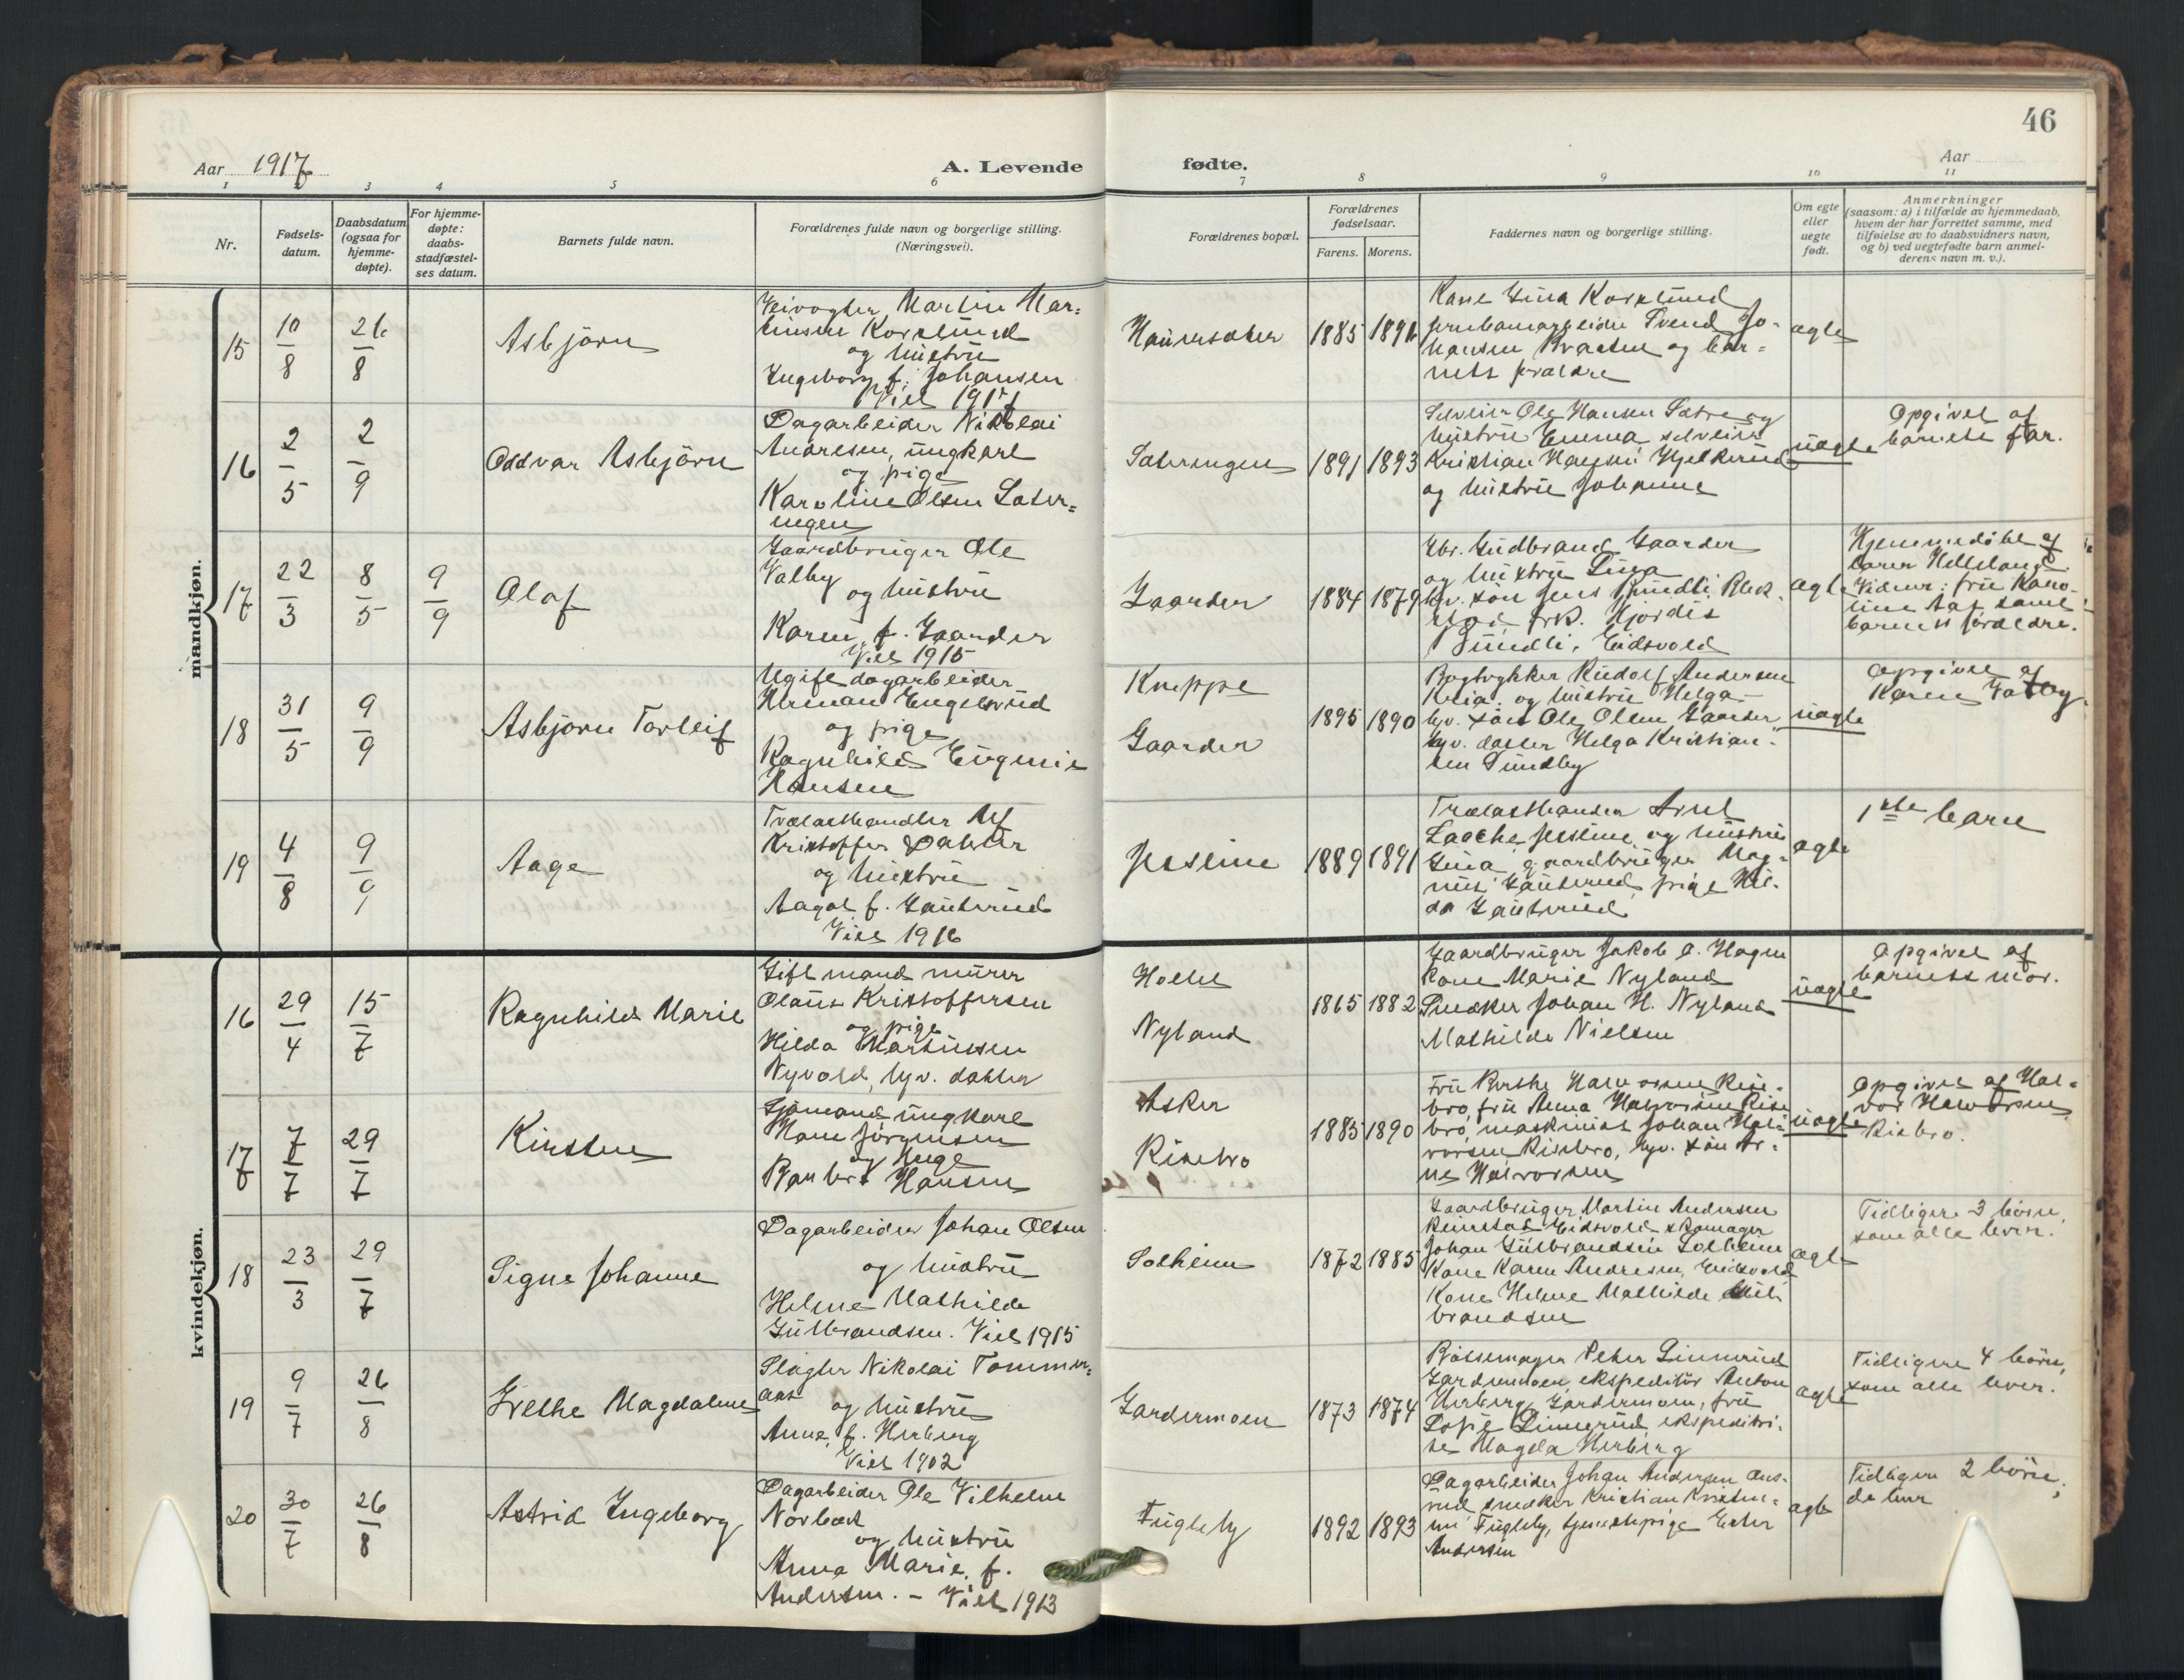 46
Aar 1917
A. Levende
fødte.
Aar
1 2 3 4 5 6 7 8 9 10 11
Nr.
Fødsels-
datum.
Daabsdatum
(ogsaa for
hjemme-
døpte).
For hjemme-
døpte:
daabs-
stadfæstel-
ses datum.
Barnets fulde navn.
Forældrenes fulde navn og borgerlige stilling.
(Næringsvei).
Forældrenes bopæl.
Forældrenes
fødselsaar.
Farens. Morens.
Faddernes navn og borgerlige stilling.
Om egte
eller
uegte
født.
Anmerkninger
(saasom: a) i tilfælde av hjemmedaab,
hvem der har forrettet samme, med
tilføielse av to daabsvidners navn,
og b) ved uegtefødte barn anmel-
derens navn m. v.).
mandkjøn.
15
10/8
26/8
Asbjörn
Veivogter Martin Mar=
tinsen Korslund
og hustru
Ingeborg f. Johansen
Viet 1917
1885
Kone Gina Korslund
Svend Jo-
hansen Braaten og bar=
nets foraldre
ægte
16
2/5
2/9
Oddvar Asbjörn
Dagarbeider Nikolai
Andresen, ungkarl
og pige
Karoline Olsen Sater=
engen
Saterengen
1891 1893
Selveier Ole Hansen Sætre og
hustru Emma, selveier
Kristian Hansen Hjelkerud
og hustru Johanne
uægte
Opgivet af
barnets far.
17
22/3
8/5
9/9
Olaf
Gaardbruger Ole
Valby og hustru
Karen, f. Gaarder
Viet 1915
Gaarder
1884 1879
Gbr. Gudbrand Gaarder
og hustru Lina
frk. Hjördis
Sundli, Eidsvold
ægte
Hjemmedöbt af
Vidner: fru Karo-
line samt
barnets foraldre.
18
31/5
9/9
Asbjörn Torleif
Ugift dagarbeider
Herman Engelsrud
og pige
Ragnhild Eugenie
Hansen
Kneppe
Gaarder
1895 1890
Bogtrykker Rudolf Andersen
Kria. og hustru Helga
hjv. sön Ole Olsen Gaarder
hjv. datter Helga Kristian-
sen Sundby
uægte
Opgivet af
Karen Valby.
19
4/8
9/9
Aage
Trælasthandler Alf
Kristoffer Dahler
og hustru
Aagot f. Gauterud
Viet 1916
Jessheim
1889 1891
Trælasthandler
Laache Jessheim og hustru
Gina, gaardbruger Mag-
nus Gauterud, pige Hil-
da Gauterud
ægte
1ste barn
kvindekjøn.
16
29/4
15/7
Ragnhild Marie
Gift mand murer
Olaus Kristoffersen
og pige
Hilda Martinsen
Nyvold, hjv. datter
Holter
Nyland
1865 1882
Gaardbruger Jakob O. Hagen
Kone Marie Nyland
Snedker Johan H. Nyland
Mathilde Nielsen
uægte
Opgivet af
barnets mor.
17
7/7
29/7
Kirsten
Sjömand, ungkarl
Hans Jörgensen
og pige
Hansen
Asker
Risebro
1885 1890
Fru Berthe Halvorsen Rise-
bro, fru Anna Halvorsen Rise
bro, maskinist Johan Hal-
vorsen Risebro, hjv. sön Ar-
ne Halvorsen
uægte
Opgivet af Hal=
vor Halvorsen
Risbro.
18
23/3
29/7
Signe Johanne
Dagarbeider Johan Olsen
og hustru
Helene Mathilde
Gulbrandsen. Viet 1915
Solheim
1872 1885
Gaardbruger Martin Andersen
Eidsvold skomager
Johan Gulbrandsen Solheim
Kone Karen Andresen, Eidsvold
Kone Helene Mathilde Gul-
brandsen
ægte
Tidligere 3 börn,
som alle lever.
19
9/7
26/8
Grethe Magdalene
Slagter Nikolai Tommer=
aas
og hustru
Anna, f. Herberg
Viet 1902
Gardermoen
1873 1874
Pölsemager Peter Linnerud
Gardermoen, ekspeditör Anton
Herberg, Gardermoen, fru
Sofie Linnerud, ekspeditri-
se Magda Herberg
ægte
Tidligere 4 börn,
som alle lever.
20
30/7
26/8
Astrid Ingeborg
Dagarbeider Ole Vilhelm
Norbæk
og hustru
Anna Marie, f.
Andersen. - Viet 1913
Fugleby
1892 1893
Dagarbeider Johan Andersen Aus-
rud snedker Kristian Kristen-
sen Fugleby, tjenestepige Ester
Andersen
ægte
Tidligere 2 börn,
de lever